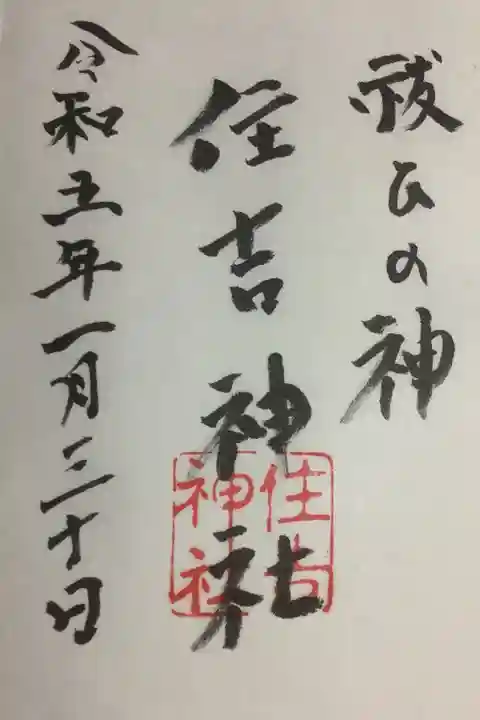 祓ひの神
住吉神社
住吉
神社
令和五年一月三十日